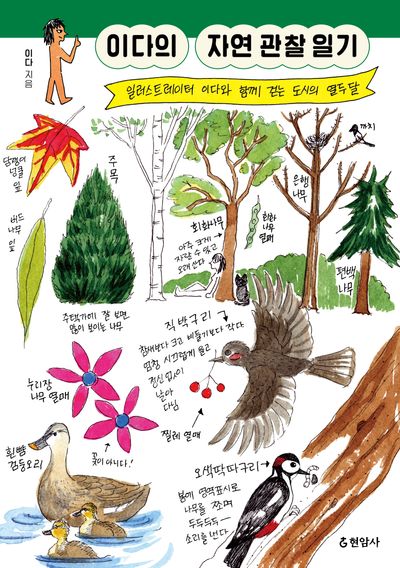 이다의 자연 관찰 일기
이다 지음
일러스트레이터 이다와 함께 걷는 도시의 열두 달
까치
담쟁이
덩굴
잎
주목
은행
나무
버드
나무
잎
회화나무
아주 크게
자랄 수 있고
오래 산다
회화
나무
열매
편백
나무
주택가에 잘 보면
많이 보이는 나무
직박구리
참새보다 크고 비둘기보다 작다
엄청 시끄럽게 울고
정신없이
날아
다님
누리장
나무 열매
꽃이 아니다!
찔레 열매
흰뺨
검둥오리
오색딱따구리
봄에 영역표시로
나무를 쪼며
두두두두―
소리를 낸다
현암사